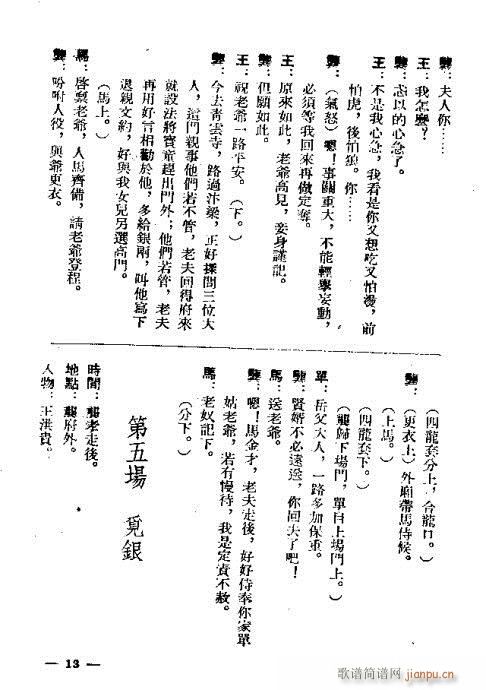 龔：夫人你……
王：我怎麼？
龔：忒以的心急了。
王：不是我心急，我看是你又想吃又怕燙，前
怕虎，後怕狼。你……
龔：（氣怒）嗯！事關重大，不能輕舉妄動，
必須等我回來再做定奪。
王：原來如此，老爺高見，妾身謹記。
龔：但願如此。
王：祝老爺一路平安。（下。）
龔：今去青雲寺，路過汴梁，正好探問三位大
人，這門親事他們若不管，老夫回得府來
就設法將寶童趕出門外；他們若管，老夫
再用好言相勸於他，多給銀兩，叫他寫下
退親文約，好與我女兒另選高門。
（馬上。）
馬：啓禀老爺，人馬齊備，請老爺登程。
龔：吩咐人役，與爺更衣。
（四龍套分上，合龍口。）
龔：（更衣上）外廂帶馬侍候。
（上馬。）
（四龍套下。）
（龔歸下場門，單自上場門上。）
單：岳父大人，一路多加保重。
龔：賢婿不必遠送，你回去了吧！
馬：送老爺。
龔：嗯！馬金才，老夫走後，好好侍奉你家單
姑老爺，若有慢待，我是定責不赦。
馬：老奴記下。
（分下。）
第五場 覓銀
時間：龔孝走後。
地點：龔府外。
人物：王洪貴。
— 13 —
歌谱简谱网
jianpu.cn